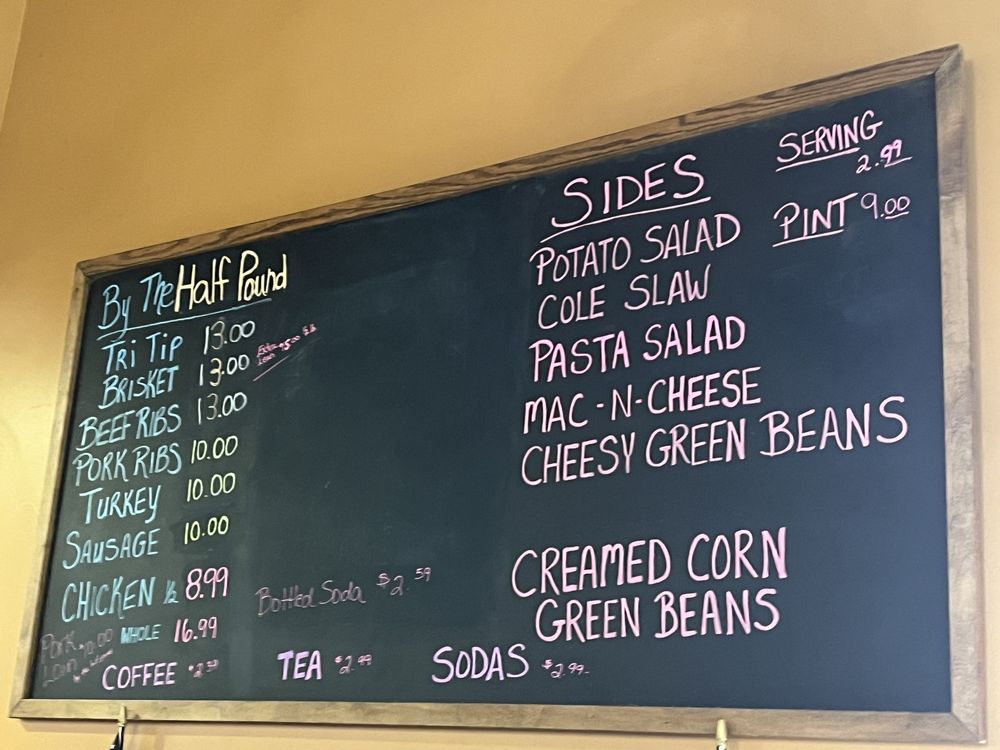 By The Half Pound
TRI TIP 13.00
BRISKET 13.00 Extra Lean
BEEF RIBS 13.00
PORK RIBS 10.00
TURKEY 10.00
SAUSAGE 10.00
CHICKEN ½ 8.99
WHOLE 16.99
PORK 10.00
LOIN
COFFEE
Bottled Soda $2.59
TEA $2.99
SODAS $2.99
SIDES
SERVING 2.99
PINT 9.00
POTATO SALAD
COLE SLAW
PASTA SALAD
MAC-N-CHEESE
CHEESY GREEN BEANS
CREAMED CORN
GREEN BEANS